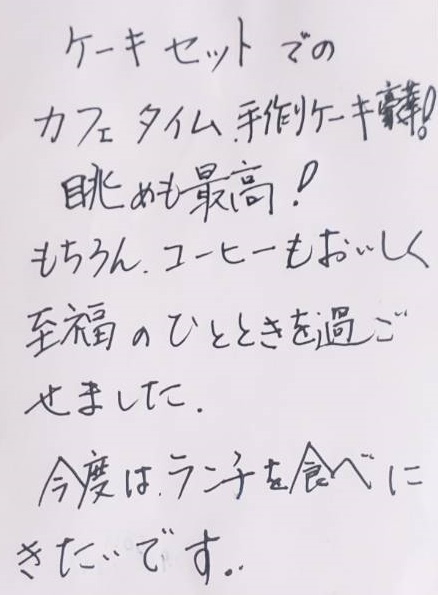 ケーキセットでの
カフェタイム.手作りケーキ豪華!
眺めも最高!
もちろん.コーヒーもおいしく
至福のひとときを過ご
せました.
今度は.ランチを食べに
きたいです..